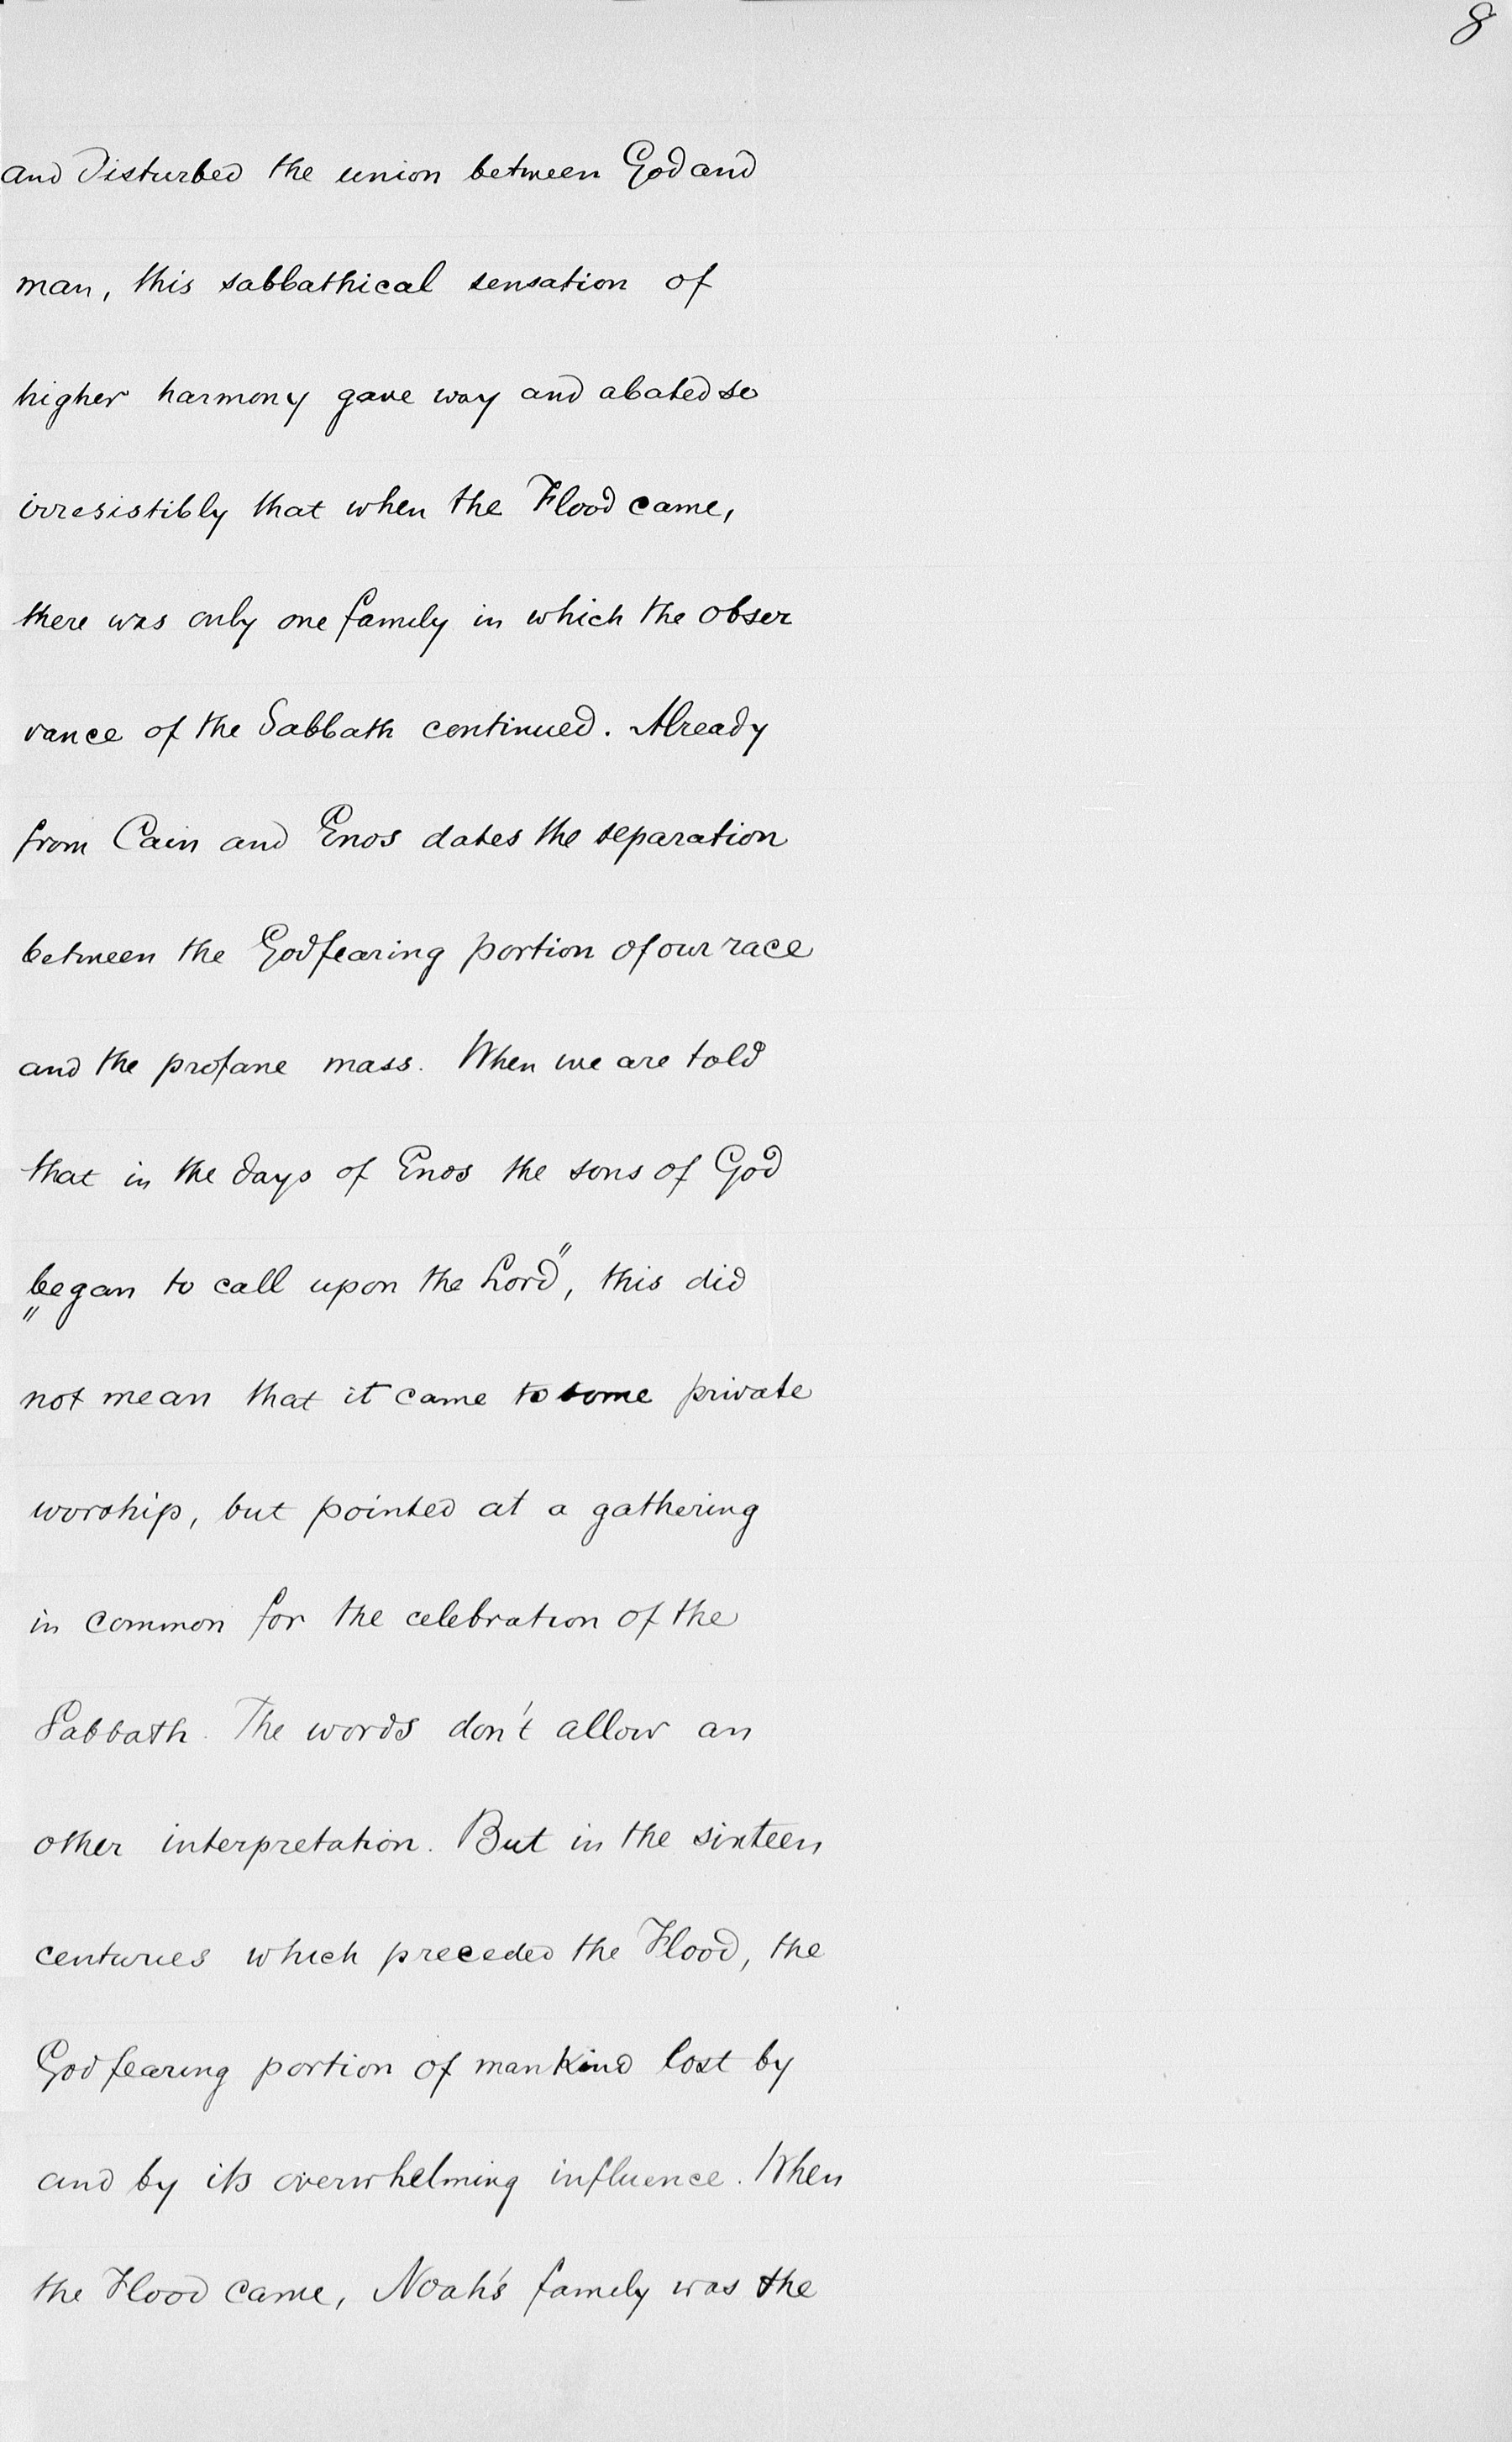 8
and disturbed the union between God and
man, this sabbathical sensation of
higher harmony gave way and abated so
irresistibly that when the Flood came,
there was only one family in which the obser
vance of the Sabbath continued. Already
from Cain and Enos dates the separation
between the Godfearing portion of our race
and the profane mass. When we are told
that in the days of Enos the sons of God
„began to call upon the Lord", this did
not mean that it came to some private
worship, but pointed at a gathering
in common for the celebration of the
Sabbath. The words don't allow an
other interpretation. But in the sixteen
centuries which preceded the Flood, the
Godfearing portion of mankind lost by
and by its overwhelming influence. When
the Flood came, Noah's family was the